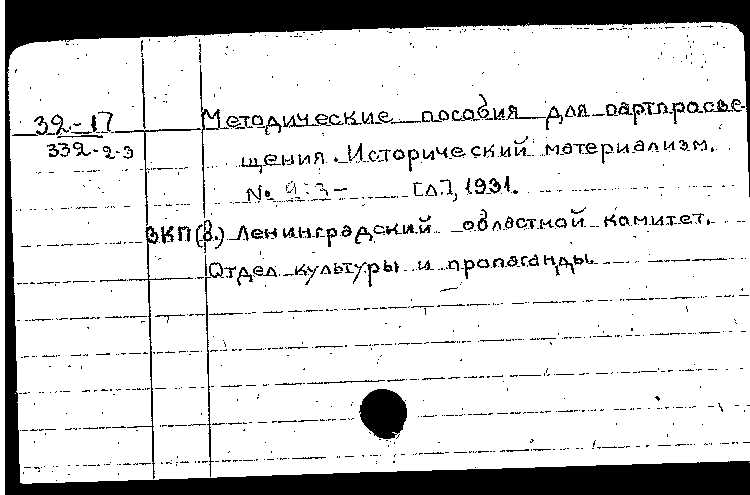 32-17
332-2-3
Методические пособия для партпросве-
щения. Исторический материализм.
№ 2-3- [Л.], 1931.
ВКП(б.) Ленинградский областной комитет.
Отдел культуры и пропаганды.